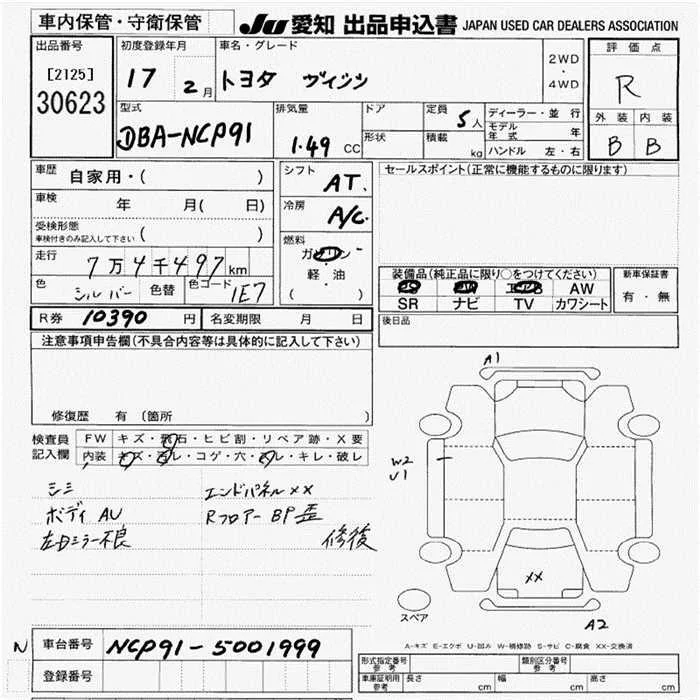 車内保管・守衛保管
JU 愛知 出品申込書 JAPAN USED CAR DEALERS ASSOCIATION
出品番号 初度登録年月 車名・グレード 評価点
[2125] 17 2月 トヨタ ヴィッツ 2WD・4WD R
30623 型式 排気量 ドア 定員 5人 ディーラー・並行 外装 内装
DBA-NCP91 1.49 CC 形状 積載 kg モデル年式 年 B B
ハンドル 左・右
車歴 自家用・( ) シフト AT. セールスポイント(正常に機能するものに限ります)
車検 年 月( 日) 冷房 A/C.
受検形態 ( )
車検付きのみ記入して下さい
走行 7万4千497km 燃料 ガソリン
軽・油
( )
色 シルバー 色替 色コード 1E7
装備品(純正品に限り○をつけてください) 新車保証書
AW 有・無
SR ナビ TV カワシート
R券 10390 円 名変期限 月 日 後日品
注意事項申告欄(不具合内容等は具体的に記入して下さい)
修復歴 有 (箇所 )
検査員 FW キズ・飛石・ヒビ割・リペア跡・X要
記入欄 内装 キズ・汚レ・コゲ・穴・スレ・キレ・破レ
シミ エンドパネル××
ボディ AU Rフロアー BP歪
左Dミラー不良 修復
A1
W2
U1
××
スペア
A2
A-キズ E-エクボ U-凹み W-補修跡 S-サビ C-腐食 XX-交換済
N 車台番号 NCP91-5001999
登録番号
形式指定番号 参考 類別区分番号 参考
車庫証明用 参考 長さ cm 幅 cm 高さ cm